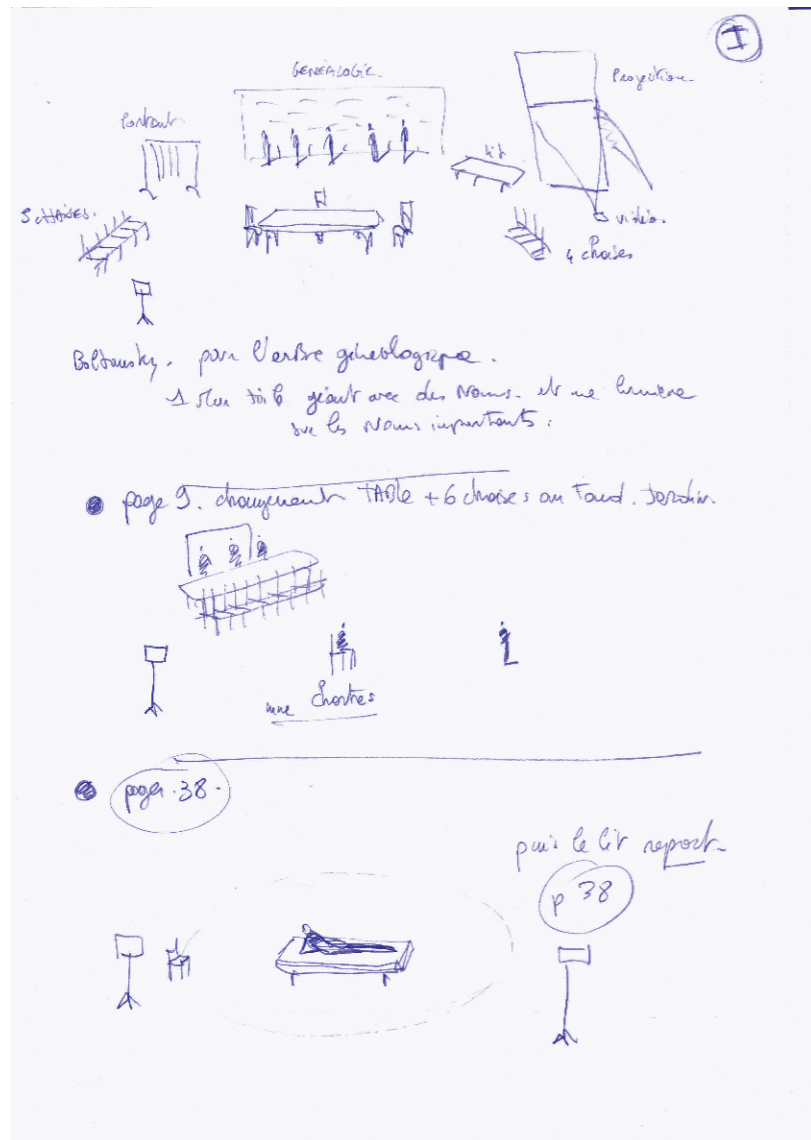 I
GENEALOGIE
Projection
Portant
lit
5 CHAISES.
vidéo.
4 chaises
Boltansky. pour l'arbre généalogique.
1 géant avec des Noms. et une lumière
sur les Noms importants.
page 9. changement TABLE + 6 chaises au Fond. Jardin.
une
page .38.
puis le lit repart
p 38